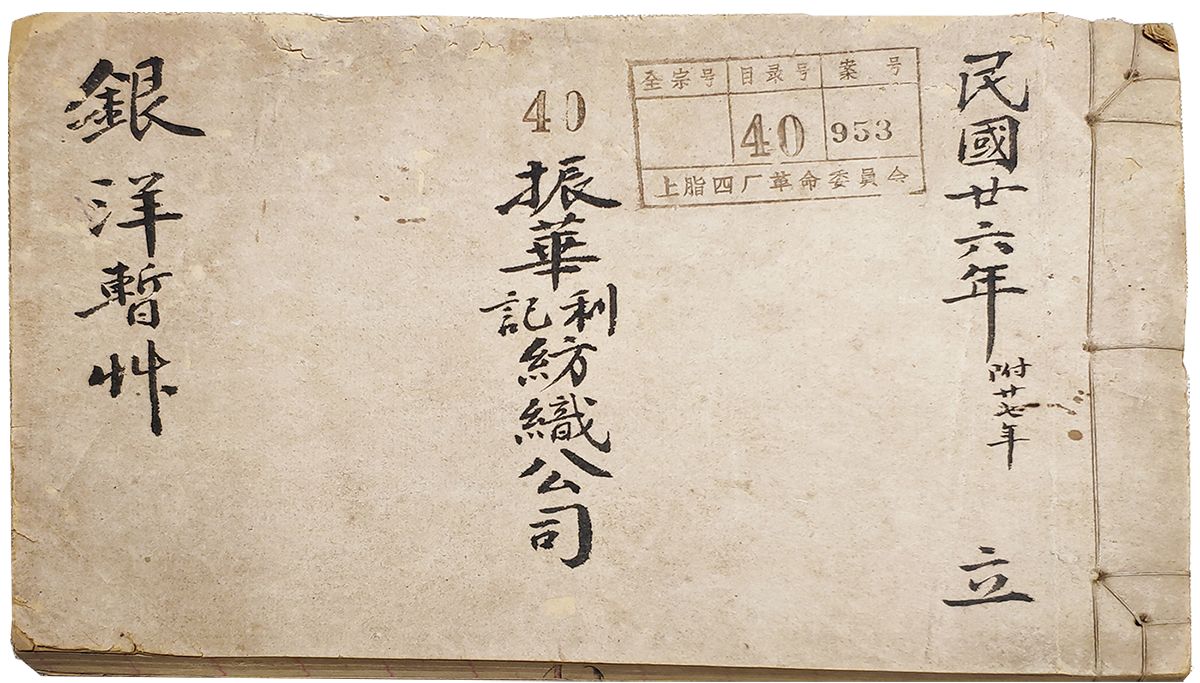 民國廿六年 附廿七年 立
全宗号 目录号 案号
40 953
上脂四厂革命委員会
40
振華利記紡織公司
銀洋暫艸